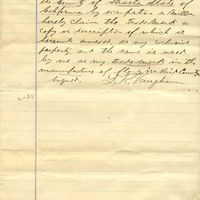 the County of Shasta State of
California by occupation a Miller
hereby claim the Trade Mark a
copy or description of which is
hereunto annexed, as my exclusive
property, and the same is used
by me as my Trademark in the
manufacture of flour in said County
Signed.
Vaughan